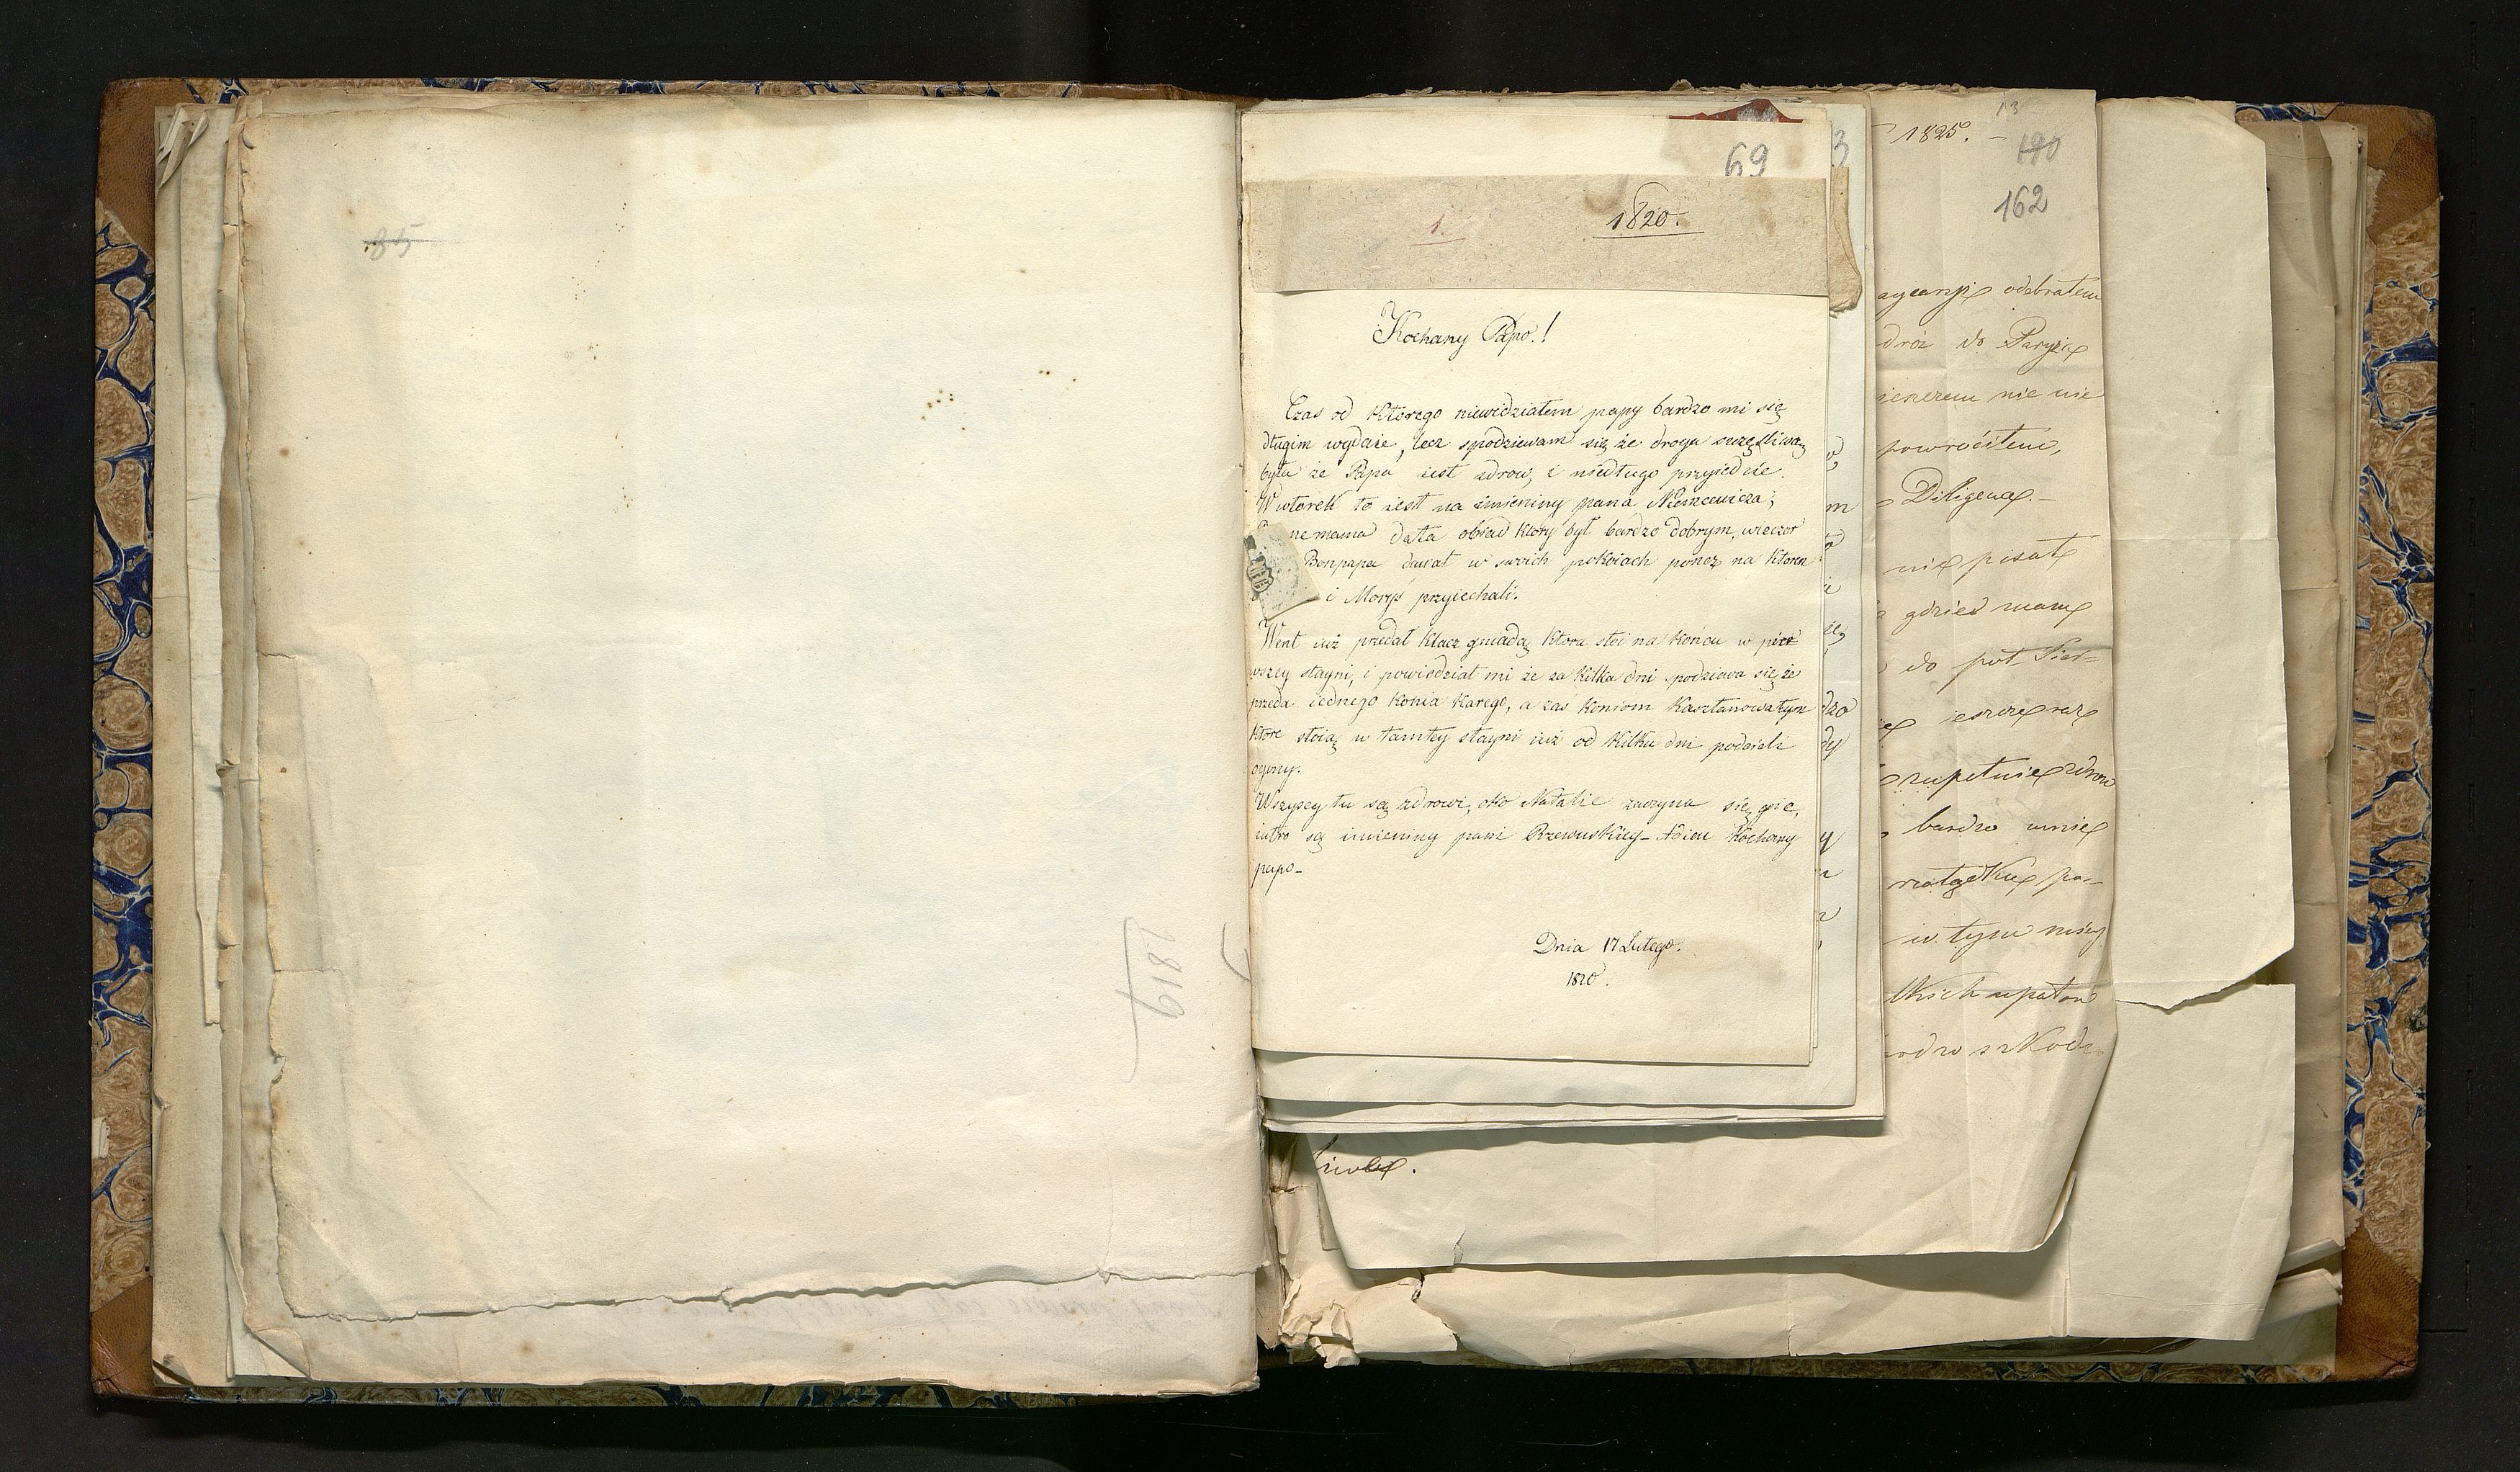 85
2819
69
1.
1820.
Kochany Papo!
Czas od którego niewidziałem papy bardzo mi się
długim wydaie, lecz spodziewam się że droga szczęśliwą
była że Papa iest zdrow, i niedługo przyiedzie.
W wtorek to iest na imieniny pana Niemcewicza,
mama dała obiad który był bardzo dobrym, wieczor
Bonpapa dawał w swoich pokoiach poncz na któren
i Moryś przyiechali.
Went iuż przedał klacz gniadą która stoi na końcu w pier=
wszey stayni, i powiedział mi że za kilka dni spodziewa się że
przeda iednego konia karego, a zaś koniom kasztanowatym
które stoią w tamtey stayni iuż od kilku dni podcieli
ogony.
Wszyscy tu są zdrowi, oko Natalie zaczyna się goić,
iutro są imieniny pani Rzewuskiey- Adieu Kochany
papo-
Dnia 17 Lutego.
1820.
3
m
dzo
dy
y
1825. -
13
190
162
odebrałem
dróż do Paryża
nie nie
powróciłem,
Diligencę.-
nie pisał
gdzieś mam
do pół Sier=
ieszcze raz
zupełnie zdrow
bardzo mnie
po-
w tym